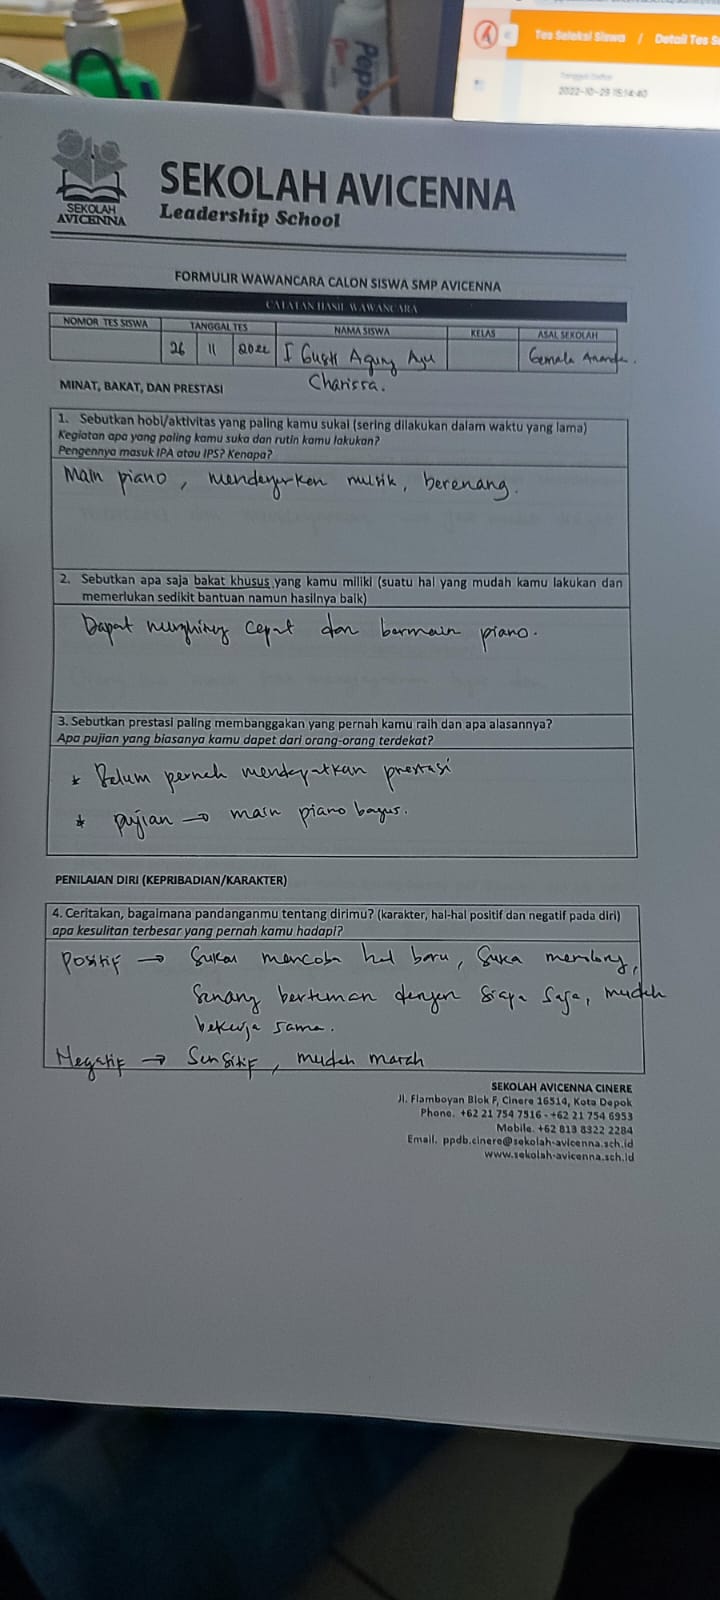 Pepso
Tes Seleksi Siswa / Detail Tes S
2022-10-29 15:14:40
SEKOLAH
AVICENNA
SEKOLAH AVICENNA
Leadership School
FORMULIR WAWANCARA CALON SISWA SMP AVICENNA
CATATAN HASIL WAWANCARA
NOMOR TES SISWA TANGGAL TES NAMA SISWA KELAS ASAL SEKOLAH
26 11 2022 I Gusti Agung Ayu Gemala Ananda.
Charissa.
MINAT, BAKAT, DAN PRESTASI
1. Sebutkan hobi/aktivitas yang paling kamu sukai (sering dilakukan dalam waktu yang lama)
Kegiatan apa yang paling kamu suka dan rutin kamu lakukan?
Pengennya masuk IPA atau IPS? Kenapa?
Main piano, mendengarkan musik, berenang.
2. Sebutkan apa saja bakat khusus yang kamu miliki (suatu hal yang mudah kamu lakukan dan
memerlukan sedikit bantuan namun hasilnya baik)
Dapat menghitung cepat dan bermain piano.
3. Sebutkan prestasi paling membanggakan yang pernah kamu raih dan apa alasannya?
Apa pujian yang biasanya kamu dapet dari orang-orang terdekat?
* Belum pernah mendapatkan prestasi
* pujian → main piano bagus.
PENILAIAN DIRI (KEPRIBADIAN/KARAKTER)
4. Ceritakan, bagaimana pandanganmu tentang dirimu? (karakter, hal-hal positif dan negatif pada diri)
apa kesulitan terbesar yang pernah kamu hadapi?
Positif → Sukai mencoba hal baru, Suka menolong,
Senang berteman dengan siapa saja, mudah
bekerja sama.
Negatif → Sensitif, mudah marah
SEKOLAH AVICENNA CINERE
Jl. Flamboyan Blok F, Cinere 16514, Kota Depok
Phone. +62 21 754 7516 - +62 21 754 6953
Mobile. +62 813 8322 2284
Email. ppdb.cinere@sekolah-avicenna.sch.id
www.sekolah-avicenna.sch.id